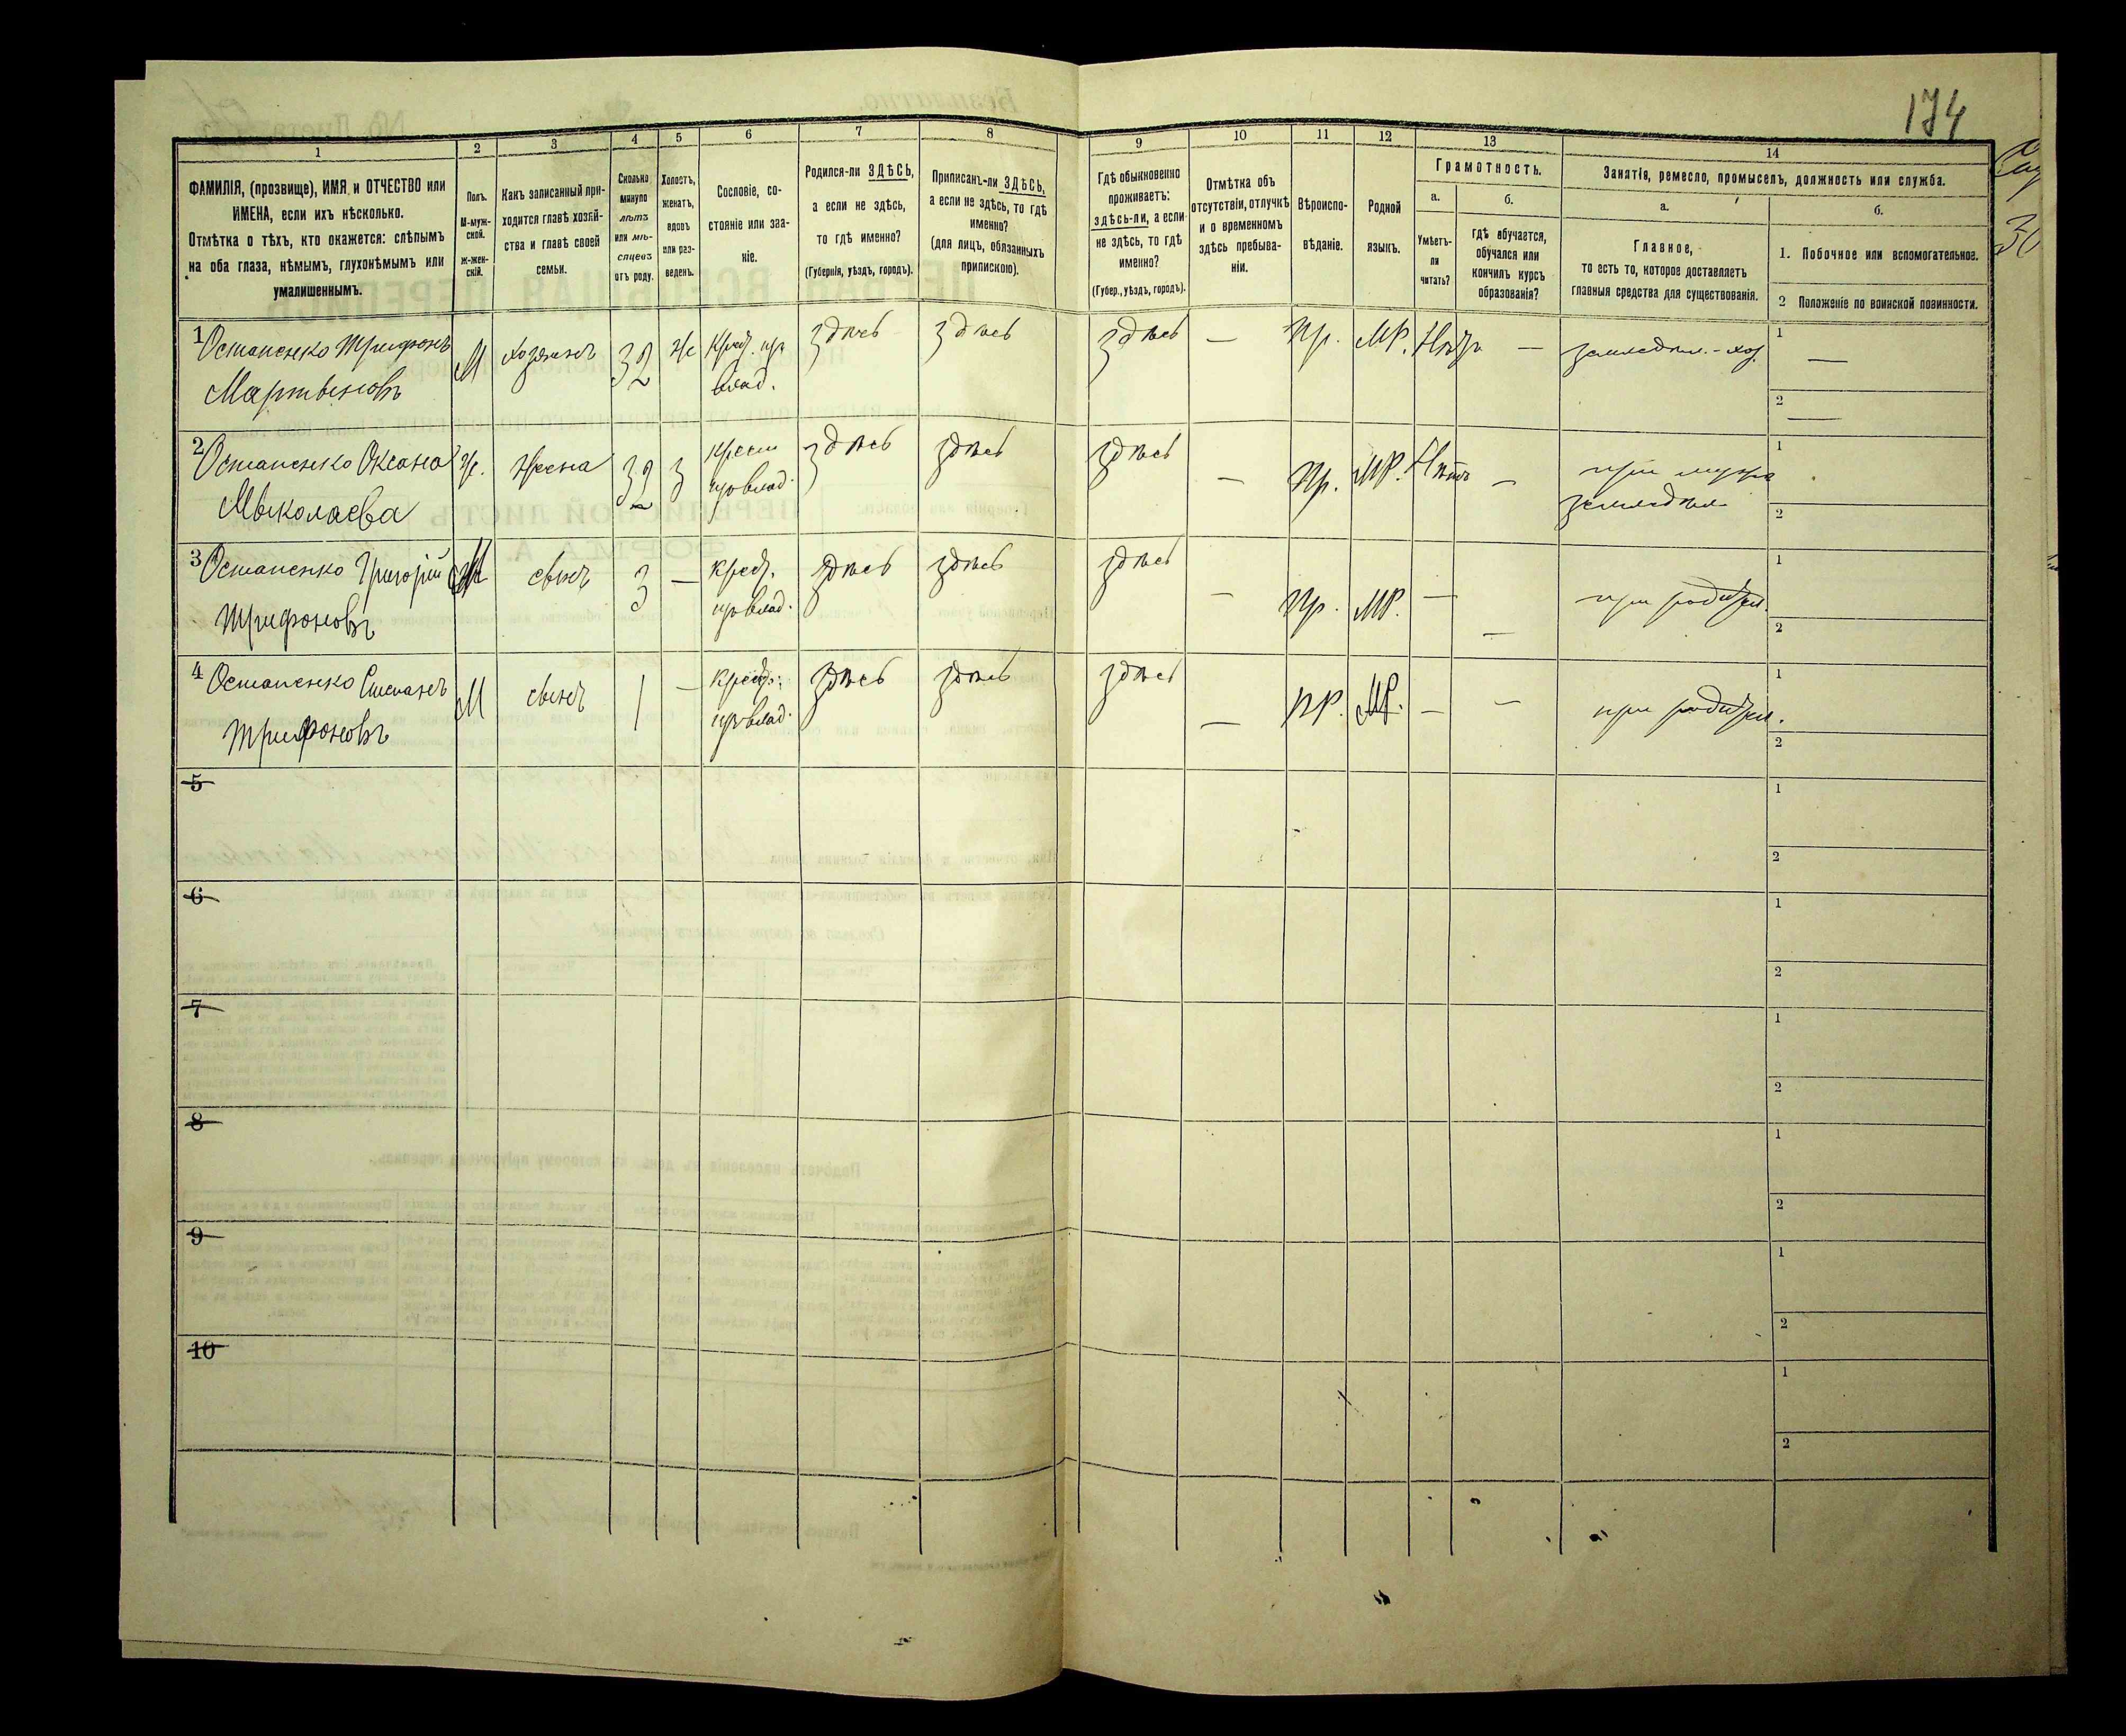 174
1
2
3
4
5
6
7
8
9
10
11
12
13
14
ФАМИЛІЯ, (прозвище), ИМЯ и ОТЧЕСТВО или
ИМЕНА, если ихъ нѣсколько.
Отмѣтка о тѣхъ, кто окажется: слѣпымъ
на оба глаза, нѣмымъ, глухонѣмымъ или
умалишеннымъ.
Полъ.
М-муж-
ской.
Ж-жен-
скій.
Какъ записанный при-
ходится главѣ хозяй-
ства и главѣ своей
семьи.
Сколько
минуло
лѣтъ
или мѣ-
сяцевъ
отъ роду.
Холостъ,
женатъ,
вдовъ
или раз-
веденъ.
Сословіе, со-
стояніе или зва-
ніе.
Родился-ли ЗДѢСЬ,
а если не здѣсь,
то гдѣ именно?
(Губернія, уѣздъ, городъ).
Приписанъ-ли ЗДѢСЬ,
а если не здѣсь, то гдѣ
именно?
(для лицъ, обязанныхъ
припискою).
Гдѣ обыкновенно
проживаетъ:
здѣсь-ли, а если
не здѣсь, то гдѣ
именно?
(Губер., уѣздъ, городъ).
Отмѣтка объ
отсутствіи, отлучкѣ
и о временномъ
здѣсь пребыва-
ніи.
Вѣроиспо-
вѣданіе.
Родной
языкъ.
Грамотность.
а.
Умѣетъ-
ли
читать?
б.
гдѣ обучается,
обучался или
кончилъ курсъ
образованія?
Занятія, ремесло, промыселъ, должность или служба.
а.
Главное,
то есть то, которое доставляетъ
главныя средства для существованія.
б.
1. Побочное или вспомогательное.
2 Положеніе по воинской повинности.
1 Остапенко Трифонъ
Мартыновъ
М
хозяинъ
32
Ж
Крест. пр
влад.
здѣсь
здѣсь
здѣсь
—
Пр.
МР.
Нѣтъ
—
земледѣл. - хоз.
1
—
2
—
2 Остапенко Оксана
Мыколаева
Ж.
Жена
32
З
крест
пр влад.
здѣсь
здѣсь
здѣсь
—
Пр.
МР.
Нѣтъ
—
при мужѣ
земледѣл.
1
2
3 Остапенко Григорій
Трифоновъ
М
сынъ
3
—
крест.
пр влад.
здѣсь
здѣсь
здѣсь
—
Пр.
МР.
—
—
при родител.
1
2
4 Остапенко Степанъ
Трифоновъ
М
сынъ
1
—
крест.
пр влад.
здѣсь
здѣсь
здѣсь
—
ПР.
МР.
—
—
при родител.
1
2
5
1
2
6
1
2
7
1
2
8
1
2
9
1
2
10
1
2